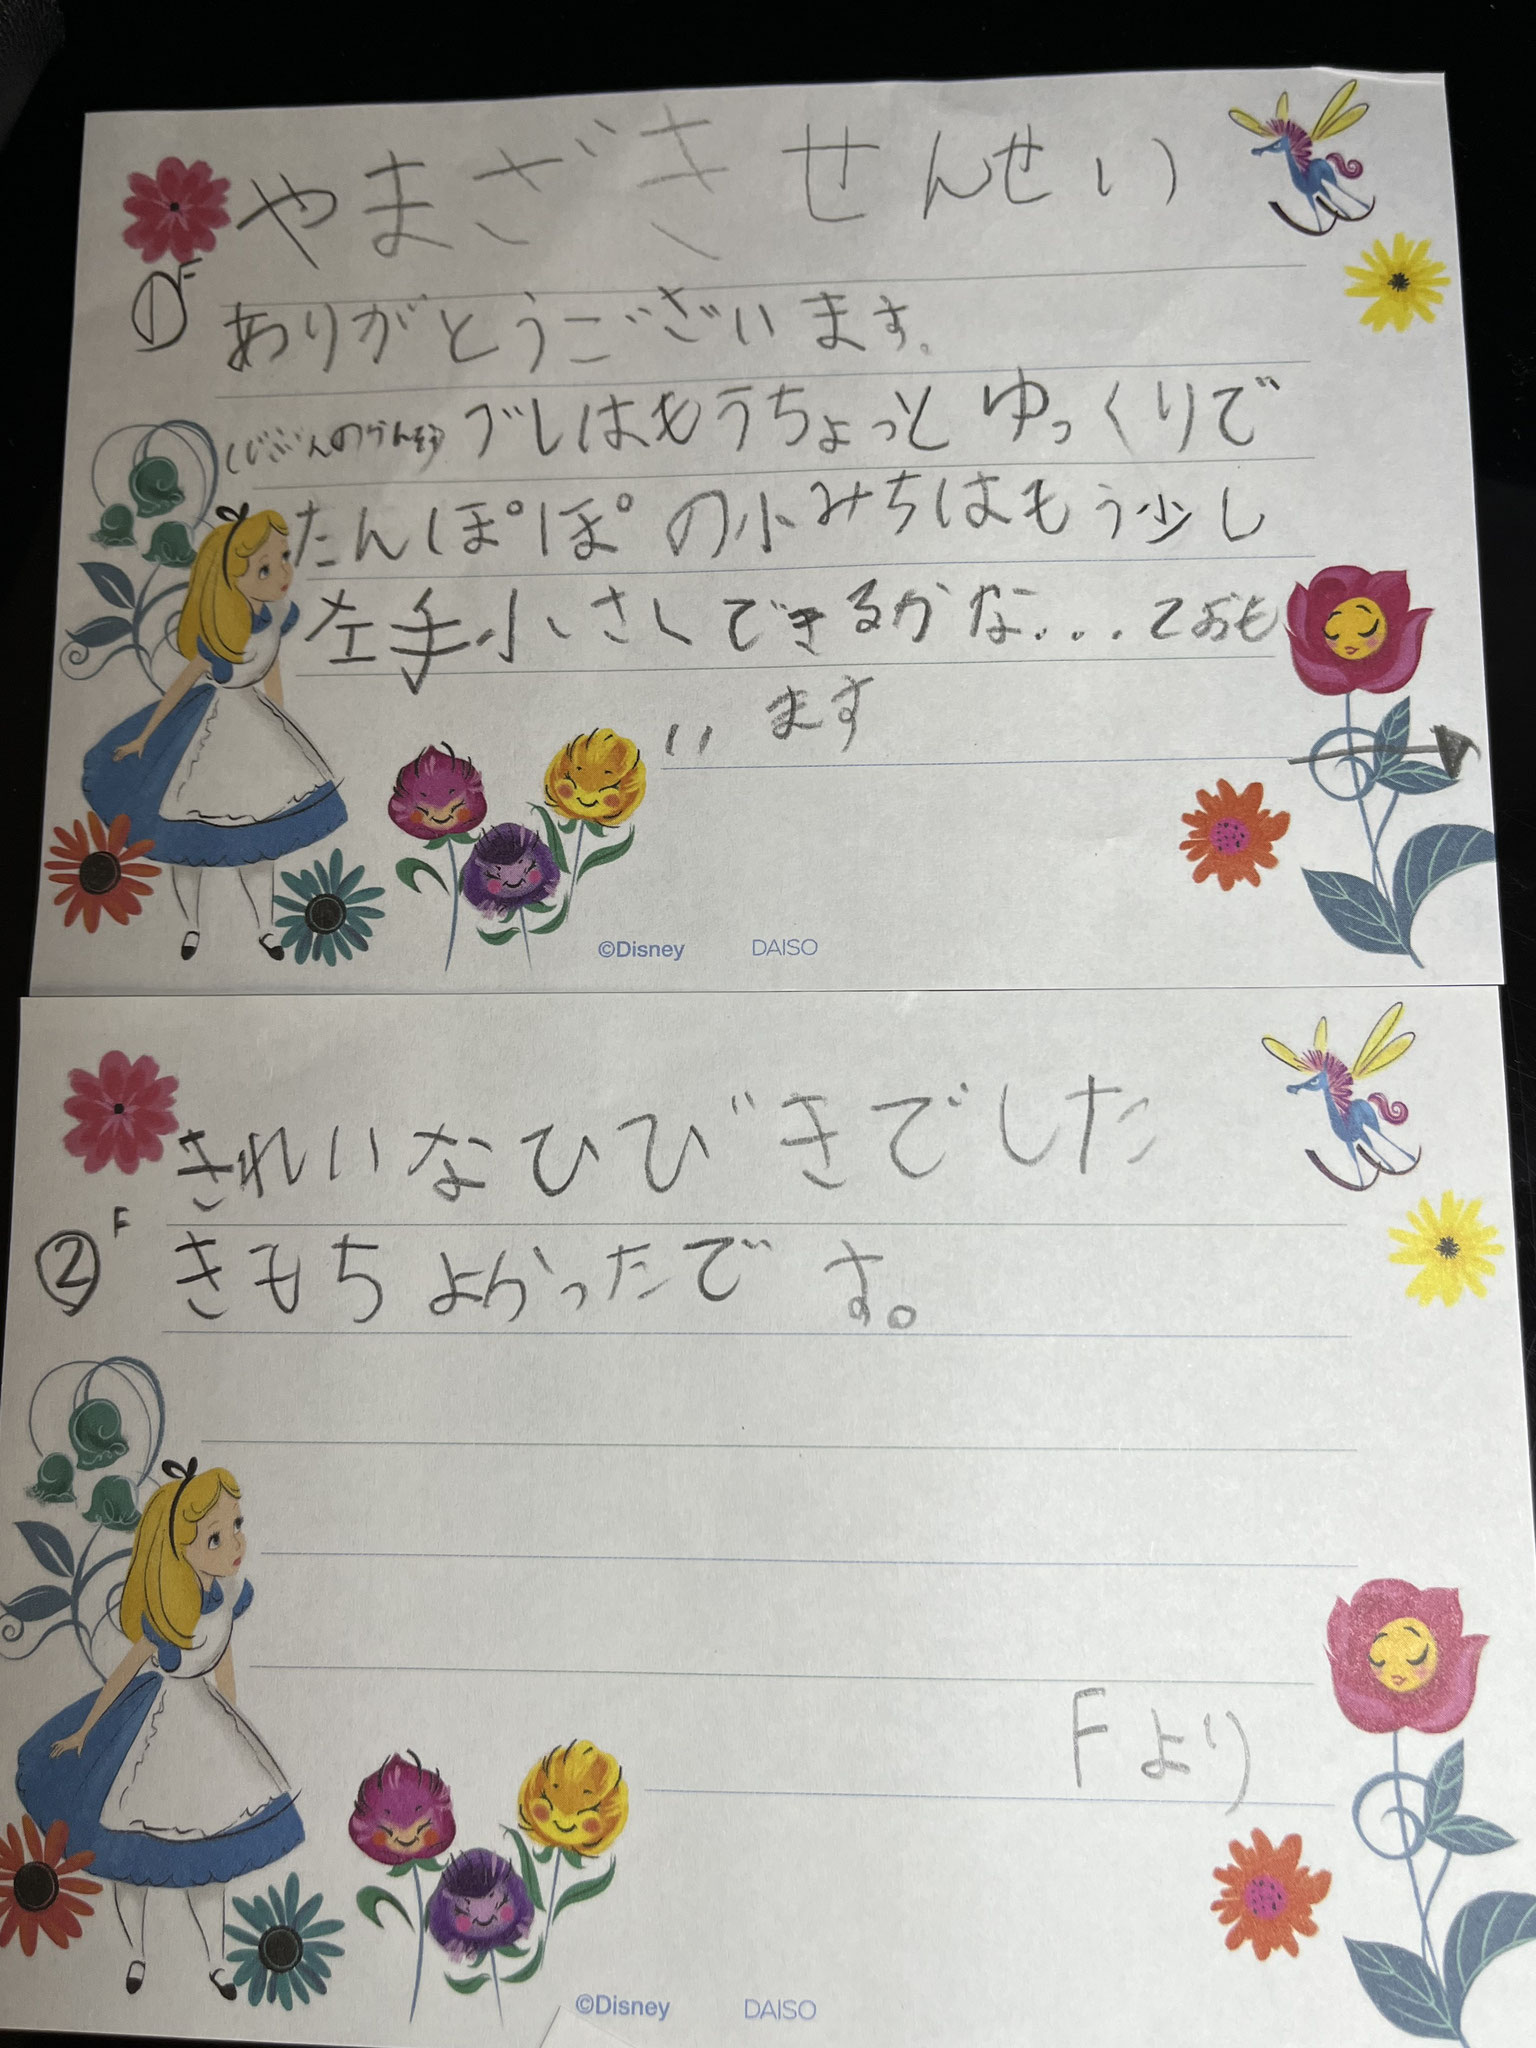 やまざきせんせい
①F
ありがとうございます。
(じぶんのかんそう) ブレはもうちょっとゆっくりで
たんぽぽの小みちはもう少し
左手小さくできるかな...ておも
います
©Disney DAISO
きれいなひびきでした
②F
きもちよかったです。
Fより
©Disney DAISO